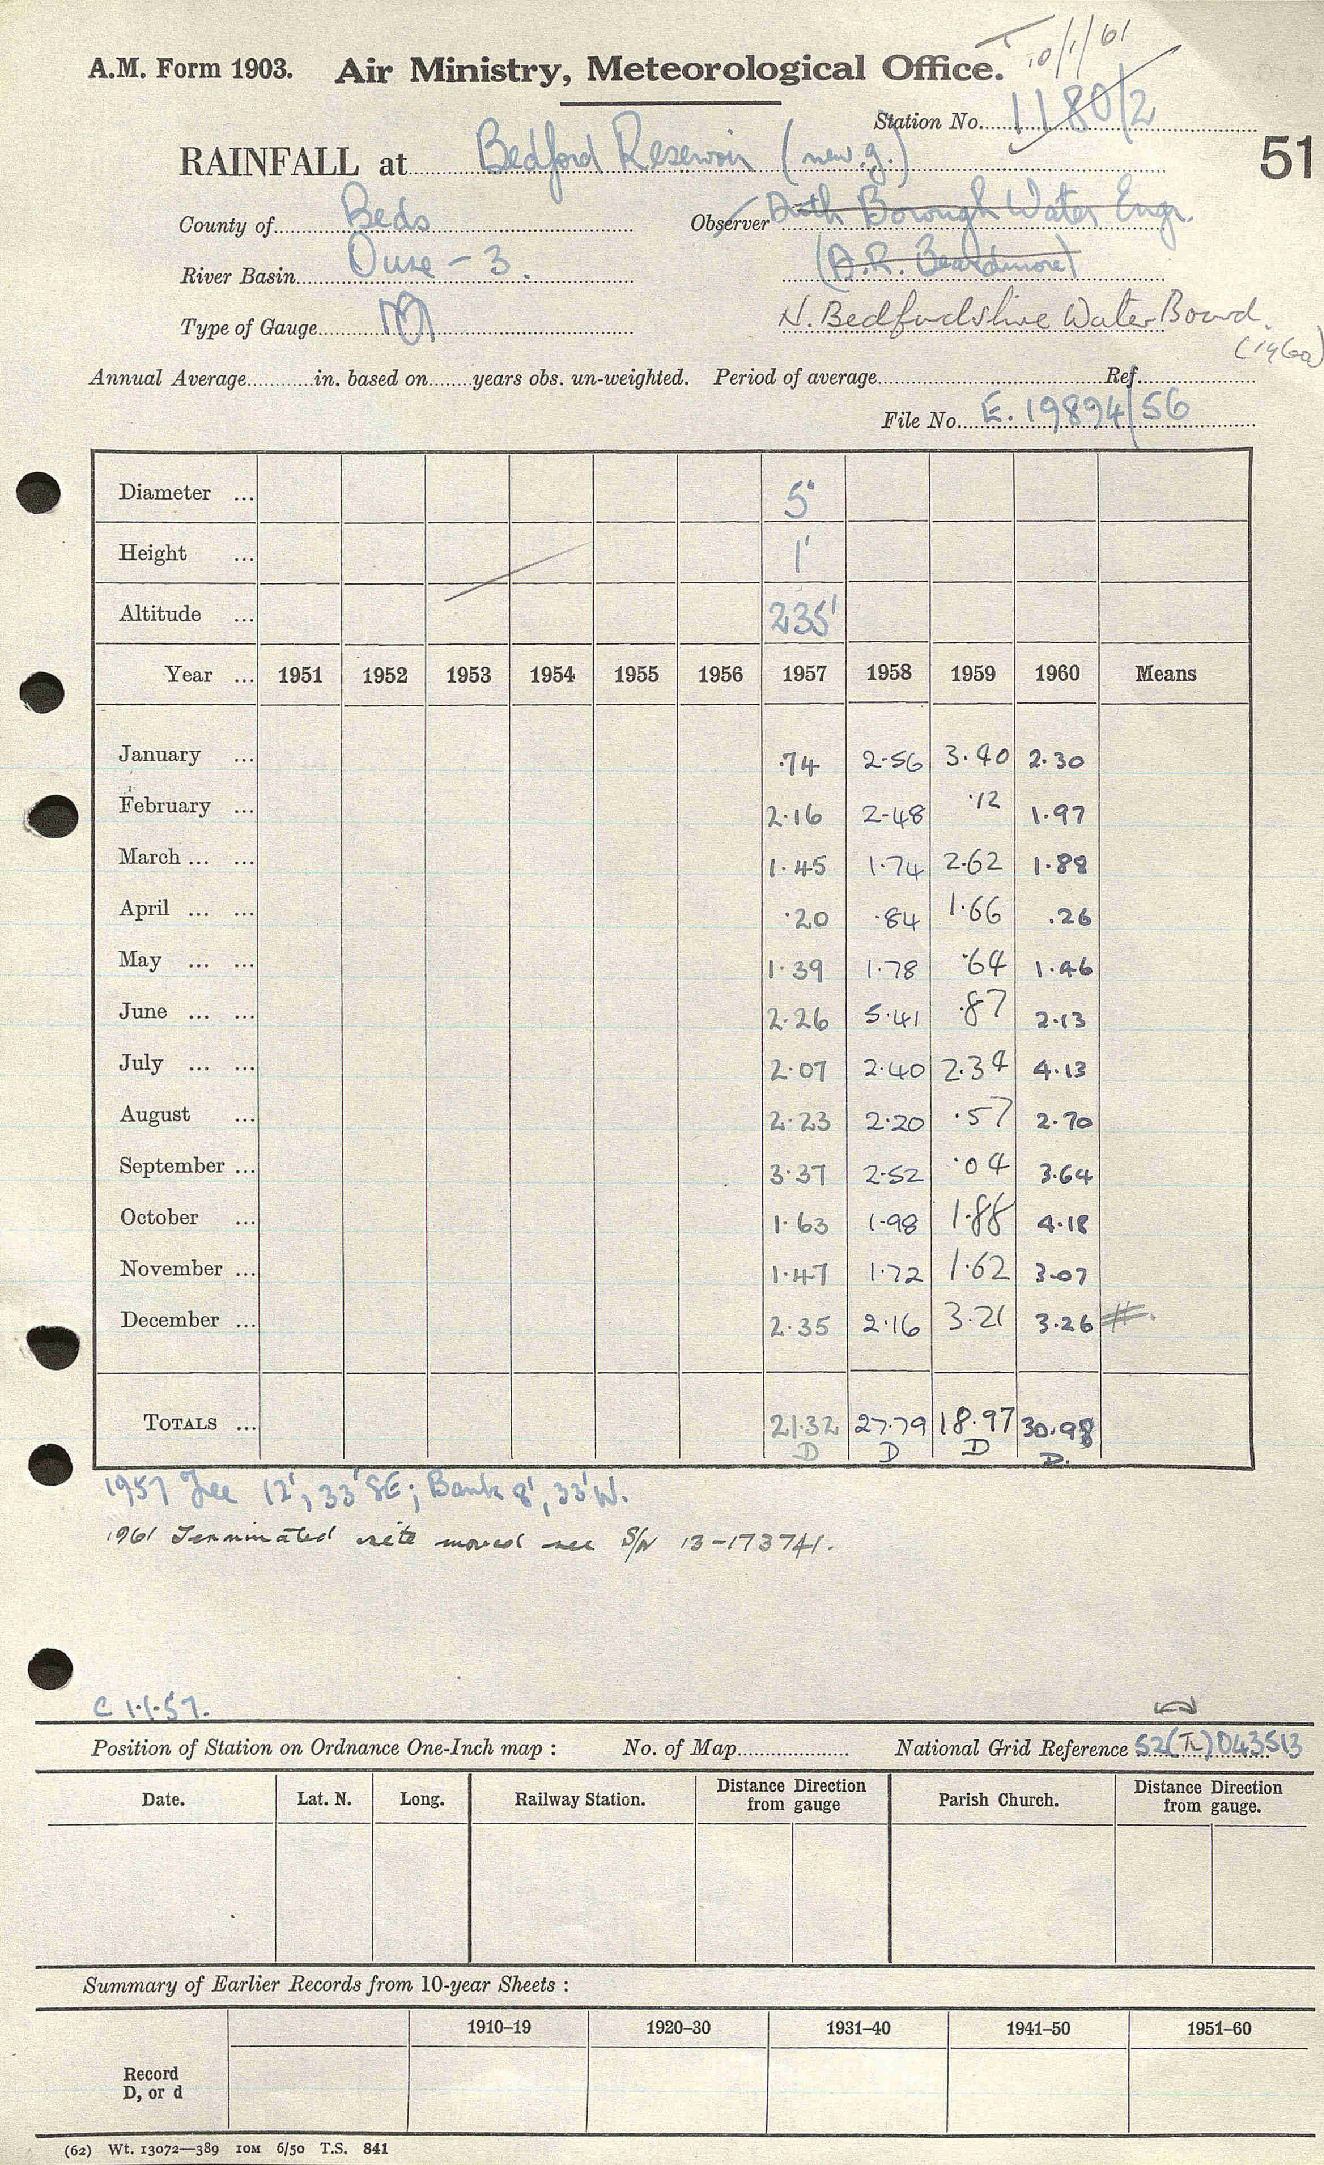 10/1/61
A.M. Form 1903. Air Ministry, Meteorological Office.
Station No. 1180/2
51
RAINFALL at Bedford Reservoir (new.g.)
County of Beds Observer Borough Water Engr.
River Basin Ouse - 3. (A.R. Beardmore)
Type of Gauge M N. Bedfordshire Water Board.
(1960)
Annual Average in. based on years obs. un-weighted. Period of average Ref.
File No. E. 19894/56
Diameter ... 5"
Height ... 1'
Altitude ... 235'
Year ... 1951 1952 1953 1954 1955 1956 1957 1958 1959 1960 Means
January ... .74 2.56 3.40 2.30
February ... 2.16 2.48 .12 1.97
March ... ... 1.45 1.74 2.62 1.88
April ... ... .20 .84 1.66 .26
May ... ... 1.39 1.78 .64 1.46
June ... ... 2.26 5.41 .87 2.13
July ... ... 2.07 2.40 2.34 4.13
August ... 2.23 2.20 .57 2.70
September ... 3.37 2.52 .04 3.64
October ... 1.63 1.98 1.88 4.18
November ... 1.47 1.72 1.62 3.07
December ... 2.35 2.16 3.21 3.26 #.
TOTALS ... 21.32 27.79 18.97 30.98
D D D D.
1957 Tree 12', 33' SE; Bank 8', 33' W.
1961 Terminated site moved see S/N 13-173741.
C 1.1.57.
Position of Station on Ordnance One-Inch map : No. of Map National Grid Reference 52(TL)043513
Date. Lat. N. Long. Railway Station. Distance from gauge Direction Parish Church. Distance from gauge. Direction
Summary of Earlier Records from 10-year Sheets :
1910–19 1920–30 1931–40 1941–50 1951–60
Record
D, or d
(62) Wt. 13072—389 10M 6/50 T.S. 841